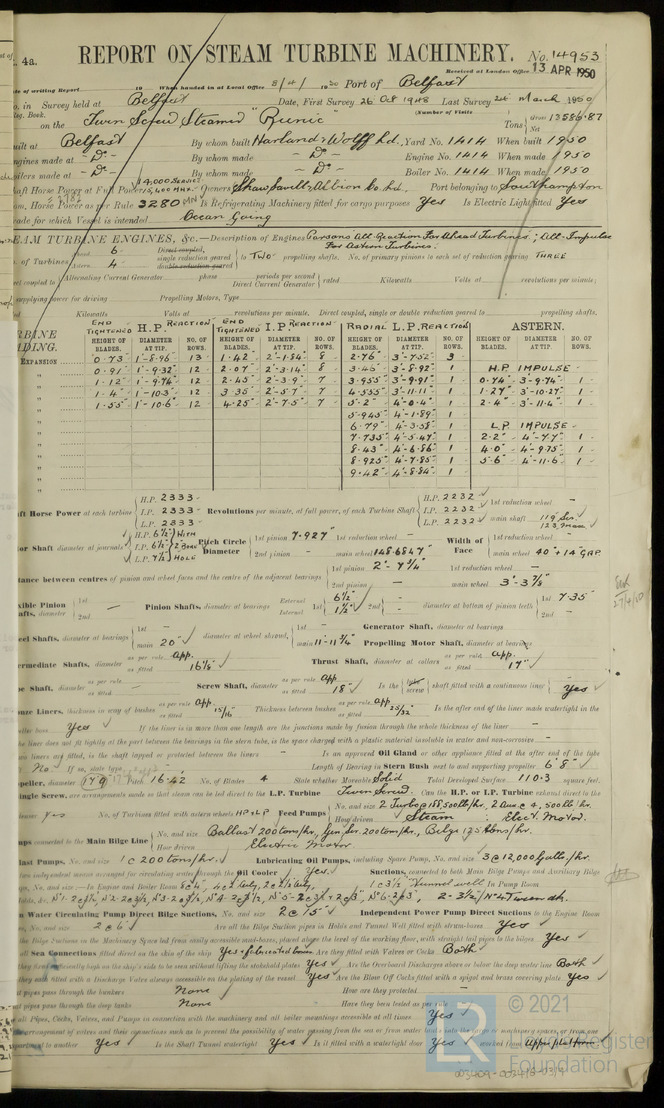 4a. REPORT ON STEAM TURBINE MACHINERY. No. 14953
Received at London Office 13 APR 1950
of writing Report 19 When handed in at Local Office 8/4/ 1950 Port of Belfast
No. in Survey held at Belfast Date, First Survey 26 Oct 1948 Last Survey March 1950
Reg. Book. (Number of Visits
on the Twin Screw Steamer "Runic" Tons Gross 13586.87 Net
Built at Belfast By whom built Harland & Wolff Ld. Yard No. 1414 When built 1950
Engines made at - Do - By whom made - Do - Engine No. 1414 When made 1950
Boilers made at - Do - By whom made - Do - Boiler No. 1414 When made 1950
Shaft Horse Power at Full Power 14,000 Service Owners Shaw Savill & Albion Co Ld. Port belonging to Southampton
Nom. Horse Power as per Rule 3280 MN Is Refrigerating Machinery fitted for cargo purposes Yes Is Electric Light fitted Yes
Trade for which Vessel is intended Ocean Going
STEAM TURBINE ENGINES, &c.—Description of Engines Parsons All-Reaction For Ahead Turbines; All-Impulse
For Astern Turbines.
No. of Turbines Ahead 6 Direct coupled, single reduction geared to TWO propelling shafts. No. of primary pinions to each set of reduction gearing THREE
Astern 4 double reduction geared
Alternating Current Generator phase periods per second
Direct Current Generator rated Kilowatts Volts at revolutions per minute;
supplying power for driving Propelling Motors, Type
Kilowatts Volts at revolutions per minute. Direct coupled, single or double reduction geared to propelling shafts.
TURBINE BLADING. END TIGHTENED H.P. REACTION END TIGHTENED I.P. REACTION RADIAL L.P. REACTION ASTERN.
HEIGHT OF BLADES. DIAMETER AT TIP. NO. OF ROWS. HEIGHT OF BLADES. DIAMETER AT TIP. NO. OF ROWS. HEIGHT OF BLADES. DIAMETER AT TIP. NO. OF ROWS. HEIGHT OF BLADES. DIAMETER AT TIP. NO. OF ROWS.
EXPANSION 0.73" 1'-8.96" 13 1.42" 2'-1.84" 8 2.76" 3'-7.52" 3
0.91" 1'-9.32" 12 2.07" 2'-3.14" 8 3.46" 3'-8.92" 1 H.P. IMPULSE
1.12" 1'-9.74" 12 2.45" 2'-3.9" 7 3.955" 3'-9.91" 1 0.74" 3'-9.74" 1
1.4" 1'-10.3" 12 3.35" 2'-5.7" 7 4.555" 3'-11.11" 1 1.27" 3'-10.27" 1
1.55" 1'-10.6" 12 4.25" 2'-7.5" 7 5.2" 4'-0.4" 1 2.4" 3'-11.4" 1
5.945" 4'-1.89" 1
6.79" 4'-3.58" 1 L.P. IMPULSE
7.735" 4'-5.47" 1 2.2" 4'-7.7" 1
8.43" 4'-6.86" 1 4.0" 4'-9.75" 1
8.925" 4'-7.85" 1 5.6" 4'-11.6" 1
9.42" 4'-8.84" 1
Shaft Horse Power at each turbine H.P. 2333 I.P. 2333 L.P. 2333 Revolutions per minute, at full power, of each Turbine Shaft H.P. 2232 I.P. 2232 L.P. 2232 1st reduction wheel - main shaft 119 Ser. 123 Max
Rotor Shaft diameter at journals H.P. 6½" I.P. 6½" L.P. 7½" WITH 2" BORE HOLE Pitch Circle Diameter 1st pinion 7.927" 2nd pinion - 1st reduction wheel - main wheel 148.6847" Width of Face 1st reduction wheel - main wheel 40"+14" GAP
Distance between centres of pinion and wheel faces and the centre of the adjacent bearings 1st pinion 2'-7¾" 2nd pinion - 1st reduction wheel - main wheel 3'-3⅞"
Flexible Pinion Shafts, diameter 1st - 2nd Pinion Shafts, diameter at bearings External 6½" Internal 1½" 1st 2nd - diameter at bottom of pinion teeth 1st 7.35 2nd -
Wheel Shafts, diameter at bearings 1st - main 20" diameter at wheel shroud, 1st - main 11'-11¾" Generator Shaft, diameter at bearings
Propelling Motor Shaft, diameter at bearings
Intermediate Shafts, diameter as per rule App. as fitted 16⅛" Thrust Shaft, diameter at collars as per rule App. as fitted 17"
Tube Shaft, diameter as per rule - as fitted Screw Shaft, diameter as per rule App as fitted 18" Is the tube screw shaft fitted with a continuous liner Yes
Bronze Liners, thickness in way of bushes as per rule App as fitted 15/16" Thickness between bushes as per rule App as fitted 25/32" Is the after end of the liner made watertight in the
propeller boss Yes If the liner is in more than one length are the junctions made by fusion through the whole thickness of the liner -
If the liner does not fit tightly at the part between the bearings in the stern tube, is the space charged with a plastic material insoluble in water and non-corrosive -
If two liners are fitted, is the shaft lapped or protected between the liners - Is an approved Oil Gland or other appliance fitted at the after end of the tube
shaft No If so, state type Length of Bearing in Stern Bush next to and supporting propeller 6'8"
Propeller, diameter 17'9" Pitch 16.42 No. of Blades 4 State whether Moveable Solid Total Developed Surface 110.3 square feet.
If Single Screw, are arrangements made so that steam can be led direct to the L.P. Turbine Twin Screw. Can the H.P. or I.P. Turbine exhaust direct to the
condenser yes No. of Turbines fitted with astern wheels HP & LP Feed Pumps No. and size 2 Turbo @ 158,500 lb/hr, 2 Aux @ 4,500 lb/hr.
How driven Steam : Elect. Motor.
Pumps connected to the Main Bilge Line No. and size Ballast 200 tons/hr, Gen Ser. 200 tons/hr, Bilge 125 tons/hr.
How driven Electric Motor
Ballast Pumps, No. and size 1 @ 200 tons/hr. Lubricating Oil Pumps, including Spare Pump, No. and size 3 @ 12,000 galls./hr.
Are two independent means arranged for circulating water through the Oil Cooler Yes Suctions, connected to both Main Bilge Pumps and Auxiliary Bilge
Pumps, No. and size:—In Engine and Boiler Room 1 @ 3½" Tunnel well In Pump Room
In Holds, &c.
Main Water Circulating Pump Direct Bilge Suctions, No. and size 2 @ 15" Independent Power Pump Direct Suctions to the Engine Room
Bilges, No. and size 2 @ 6" Are all the Bilge Suction pipes in Holds and Tunnel Well fitted with strum-boxes Yes
Are the Bilge Suctions in the Machinery Space led from easily accessible mud-boxes, placed above the level of the working floor, with straight tail pipes to the bilges Yes
Are all Sea Connections fitted direct on the skin of the ship Yes + fabricated boxes Are they fitted with Valves or Cocks Both
Are they fixed sufficiently high on the ship's side to be seen without lifting the stokehold plates Yes Are the Overboard Discharges above or below the deep water line Both
Are they each fitted with a Discharge Valve always accessible on the plating of the vessel Yes Are the Blow Off Cocks fitted with a spigot and brass covering plate Yes
What pipes pass through the bunkers None How are they protected -
What pipes pass through the deep tanks None Have they been tested as per rule -
Are all Pipes, Cocks, Valves, and Pumps in connection with the machinery and all boiler mountings accessible at all times Yes
Is the arrangement of valves and their connections such as to prevent the possibility of water passing from the sea or from water tanks into cargo or machinery spaces, or from one
compartment to another Yes Is the Shaft Tunnel watertight Yes Is it fitted with a watertight door Yes worked from Upper platform
© 2021
LR
Lloyd's Register
Foundation